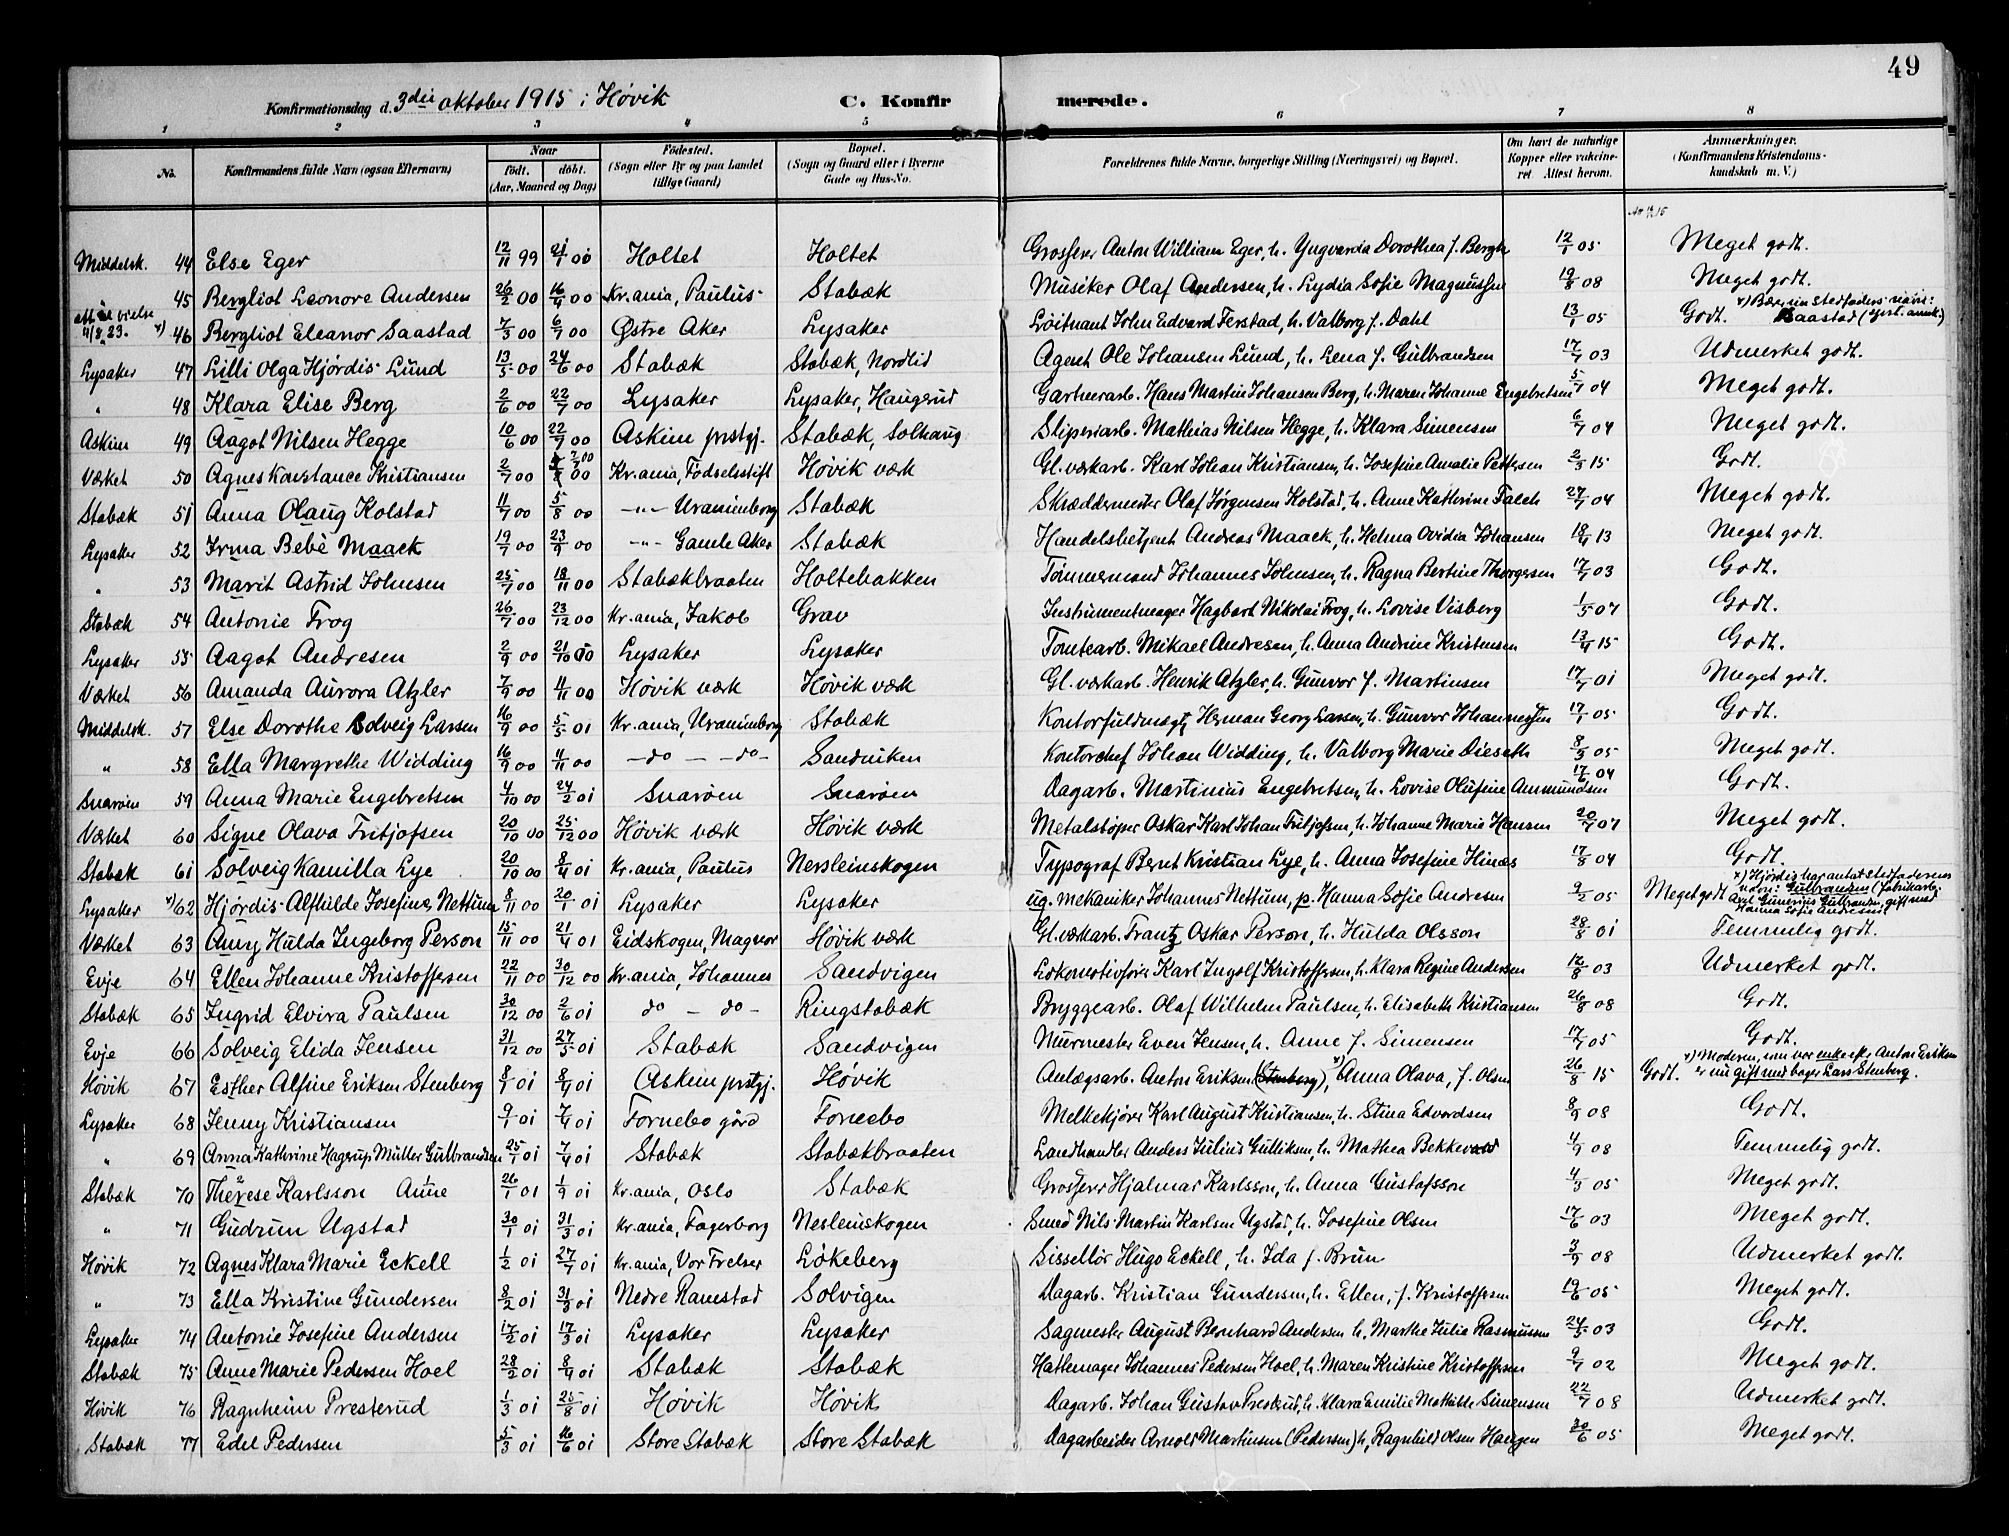 49
Konfirmationsdag d. 3die oktober 1915 i Høvik C. Konfirmerede.
1 2 3 4 5 6 7 8
No. Konfirmandens fulde Navn (ogsaa Efternavn) Naar født. døbt. (Aar, Maaned og Dag) Fødested. (Sogn eller By og paa Landet tillige Gaard) Bopæl. (Sogn og Gaard eller i Byerne Gade og Hus-No. Forældrenes fulde Navne, borgerlige Stilling (Næringsvei) og Bopæl. Om havt de naturlige Kopper eller vakcineret. Attest herom. Anmærkninger. (Konfirmandens Kristendomskundskab m. V.)
Middelsk. 44 Else Eger 12/11 99 21/1 00 Holtet Holtet Grosserer Anton William Eger, h. Yngvarda Dorothea f. Bergh 12/1 05 Meget godt.
45 Bergliot Leonore Andersen 26/2 00 16/4 00 Kr.ania, Paulus Stabæk Musiker Olaf Andersen, h. Lydia Sofie Magnussen 19/8 08 Meget godt.
4/8 23. x) 46 Bergliot Eleanor Saastad 7/3 00 6/7 00 Østre Aker Lysaker Løitnant John Edvard Ferstad, h. Valborg f. Dahl 13/1 05 Godt. x) Bærer sin stedfaders navn: Saastad
Lysaker 47 Lilli Olga Hjørdis Lund 13/5 00 24/6 00 Stabæk Stabæk, Nordlid Agent Ole Johansen Lund, h. Lena f. Gulbrandsen 17/7 03 Udmerket godt.
" 48 Klara Elise Berg 2/6 00 22/7 00 Lysaker Lysaker, Haugerud Gartnerarb. Hans Martin Johansen Berg, h. Maren Johanne Engebretsen 5/7 04 Meget godt.
Askim 49 Aagot Nilsen Hegge 10/6 00 22/7 00 Askim prstgj. Stabæk, Solhaug Sliperiarb. Mathias Nilsen Hegge, h. Klara Simensen 6/7 04 Meget godt.
Værket 50 Agnes Konstance Kristiansen 2/7 00 Kr.ania, Fødselsstift Høvik værk Gl.værkarb. Karl Johan Kristiansen, h. Josefine Amalie Pettersen 2/3 15 Godt.
Stabæk 51 Anna Olaug Kolstad 11/7 00 5/8 00 -"- Uranienborg Stabæk Skræddermester Olaf Jørgensen Kolstad, h. Anne Kathrine Falch 27/7 04 Meget godt.
Lysaker 52 Irma Bebè Maack 19/7 00 23/9 00 -"- Gamle Aker Stabæk Handelsbetjent Andreas Maack, h. Helma Ovidia Johansen 18/4 13 Meget godt.
" 53 Marit Astrid Johnsen 25/7 00 18/11 00 Stabækbraaten Holtebakken Tømmermand Johannes Johnsen, h. Ragna Bertine Thorgersen 17/7 03 Godt.
Stabæk 54 Antonie Frog 26/7 00 23/12 00 Kr.ania, Jakob Grav Instrumentmager Hagbart Nikolai Frog, h. Lovise Visberg 1/5 07 Godt.
Lysaker 55 Aagot Andresen 2/9 00 21/10 00 Lysaker Lysaker Tomtearb. Mikael Andresen, h. Anna Andrine Kristensen 13/4 15 Godt.
Værket 56 Amanda Aurora Atzler 7/9 00 11/11 00 Høvik værk Høvik værk Gl.værkarb. Henrik Atzler, h. Gunvor f. Martinsen 17/7 01 Meget godt.
Middelsk. 57 Else Dorothe Solveig Larsen 16/9 00 5/5 01 Kr.ania, Uranienborg Stabæk Kontorfuldmægt. Herman Georg Larsen, h. Gunvor Johannessen 17/1 05 Godt.
" 58 Ella Margrethe Widding 16/9 00 4/11 00 -do- -do- Sandviken Kontorchef Johan Widding, h. Valborg Marie Dieseth 8/3 05 Meget godt.
Snarøen 59 Anna Marie Engebretsen 4/10 00 24/2 01 Snarøen Snarøen Dagarb. Martinius Engebretsen, h. Lovise Olufine Amundsen 17/6 04 Godt.
Værket 60 Signe Olava Fritjofsen 20/10 00 25/12 00 Høvik værk Høvik værk Metalstøper Oskar Karl Johan Fritjofsen, h. Johanne Marie Hansen 20/7 07 Meget godt.
Stabæk 61 Solveig Kamilla Lye 20/10 00 8/4 01 Kr.ania, Paulus Nersleinskogen Typograf Bernt Kristian Lye, h. Anna Josefine Hinæs 17/8 04 Godt.
Lysaker x) 62 Hjørdis Alfhilde Josefine Nettum 8/11 00 20/1 01 Lysaker Lysaker ug. mekaniker Johannes Nettum, p. Hanna Sofie Andresen 9/2 05 Meget godt x) Hjørdis har antat stedfaderens navn: Gulbrandsen (fabrikarb. Axel Gunerius Gulbrandsen, gift med Hanna Sofie Andresen)
Værket 63 Anny Hulda Ingeborg Person 15/11 00 21/4 01 Eidskogen, Magnor Høvik værk Gl.værkarb. Frantz Oskar Person, h. Hulda Olsson 28/8 01 Temmelig godt.
Evje 64 Ellen Johanne Kristoffersen 22/11 00 30/12 00 Kr.ania, Johannes Sandvigen Lokomotivfører Karl Ingolf Kristoffersen, h. Klara Regine Andersen 12/8 03 Udmerket godt.
Stabæk 65 Ingrid Elvira Paulsen 30/12 00 2/6 01 do - do - Ringstabæk Bryggearb. Olaf Wilhelm Paulsen, h. Elisabeth Kristiansen 26/8 08 Godt.
Evje 66 Solveig Elida Jensen 31/12 00 27/5 01 Stabæk Sandvigen Murmester Even Jensen, h. Anne f. Simensen 17/7 05 Godt.
Høvik 67 Esther Alfine Eriksen Stenberg 8/1 01 8/4 01 Askim prstgj. Høvik Anlægsarb. Anton Eriksen (Stenberg), x) Anna Olava, f. Olsen 26/8 15 Godt. x) Moderen, som var enke efter Anton Eriksen er nu gift med bager Lars Stenberg.
Lysaker 68 Jenny Kristiansen 9/1 01 7/4 01 Fornebo gård Fornebo Melkekjører Karl August Kristiansen, h. Stina Edvardsen 8/9 08 Godt.
" 69 Anna Kathrine Hagerup Müller Gulbrandsen 25/1 01 7/4 01 Stabæk Stabækbraaten Landhandler Anders Julius Gulliksen, h. Mathea Bekkevold 4/9 08 Temmelig godt.
Stabæk 70 Therese Karlsson Anne 26/1 01 1/9 01 Kr.ania, Oslo Stabæk Grosserer Hjalmar Karlsson, h. Anna Gustafsson 4/3 05 Meget godt.
" 71 Gudrun Ugstad 30/1 01 31/3 01 Kr.ania, Fagerborg Nesleinskogen Smed Nils Martin Karlsen Ugstad, h. Josefine Olsen 17/6 03 Meget godt.
Høvik 72 Agnes Klara Marie Eckell 1/2 01 27/7 01 Kr.ania, Vor Frelser Løkeberg Sisselør Hugo Eckell, h. Ida f. Brun 3/9 08 Udmerket godt.
" 73 Ella Kristine Gundersen 8/2 01 31/3 01 Nedre Ramstad Solvigen Dagarb. Kristian Gundersen, h. Ellen, f. Kristoffersen 19/6 05 Meget godt.
Lysaker 74 Antonie Josefine Andersen 17/2 01 17/3 01 Lysaker Lysaker Sagmester August Bernhard Andersen h. Marthe Julie Rasmussen 24/5 03 Godt.
Stabæk 75 Anne Marie Pedersen Hoel 28/2 01 8/4 01 Stabæk Stabæk Hattemager Johannes Pedersen Hoel, h. Maren Kristine Kristoffersen 9/7 02 Meget godt.
Høvik 76 Ragnheim Presterud 1/3 01 25/8 01 Høvik Høvik Dagarb. Johan Gustav Presterud, h. Klara Emilie Mathilde Simensen 22/7 08 Udmerket godt.
Stabæk 77 Edel Pedersen 5/3 01 16/6 01 Store Stabæk Store Stabæk Dagarbeider Arnold Martinsen (Pedersen) h. Ragnhild Olsen Haugen 30/6 05 Meget godt.